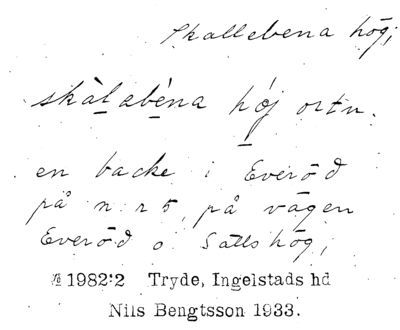 Skallebena hög;
skàlabèna hǿj ortn.
en backe i Everöd
på n:r 5, på vägen
Everöd o Sattshög;
1982:2 Tryde, Ingelstads hd
Nils Bengtsson 1933.